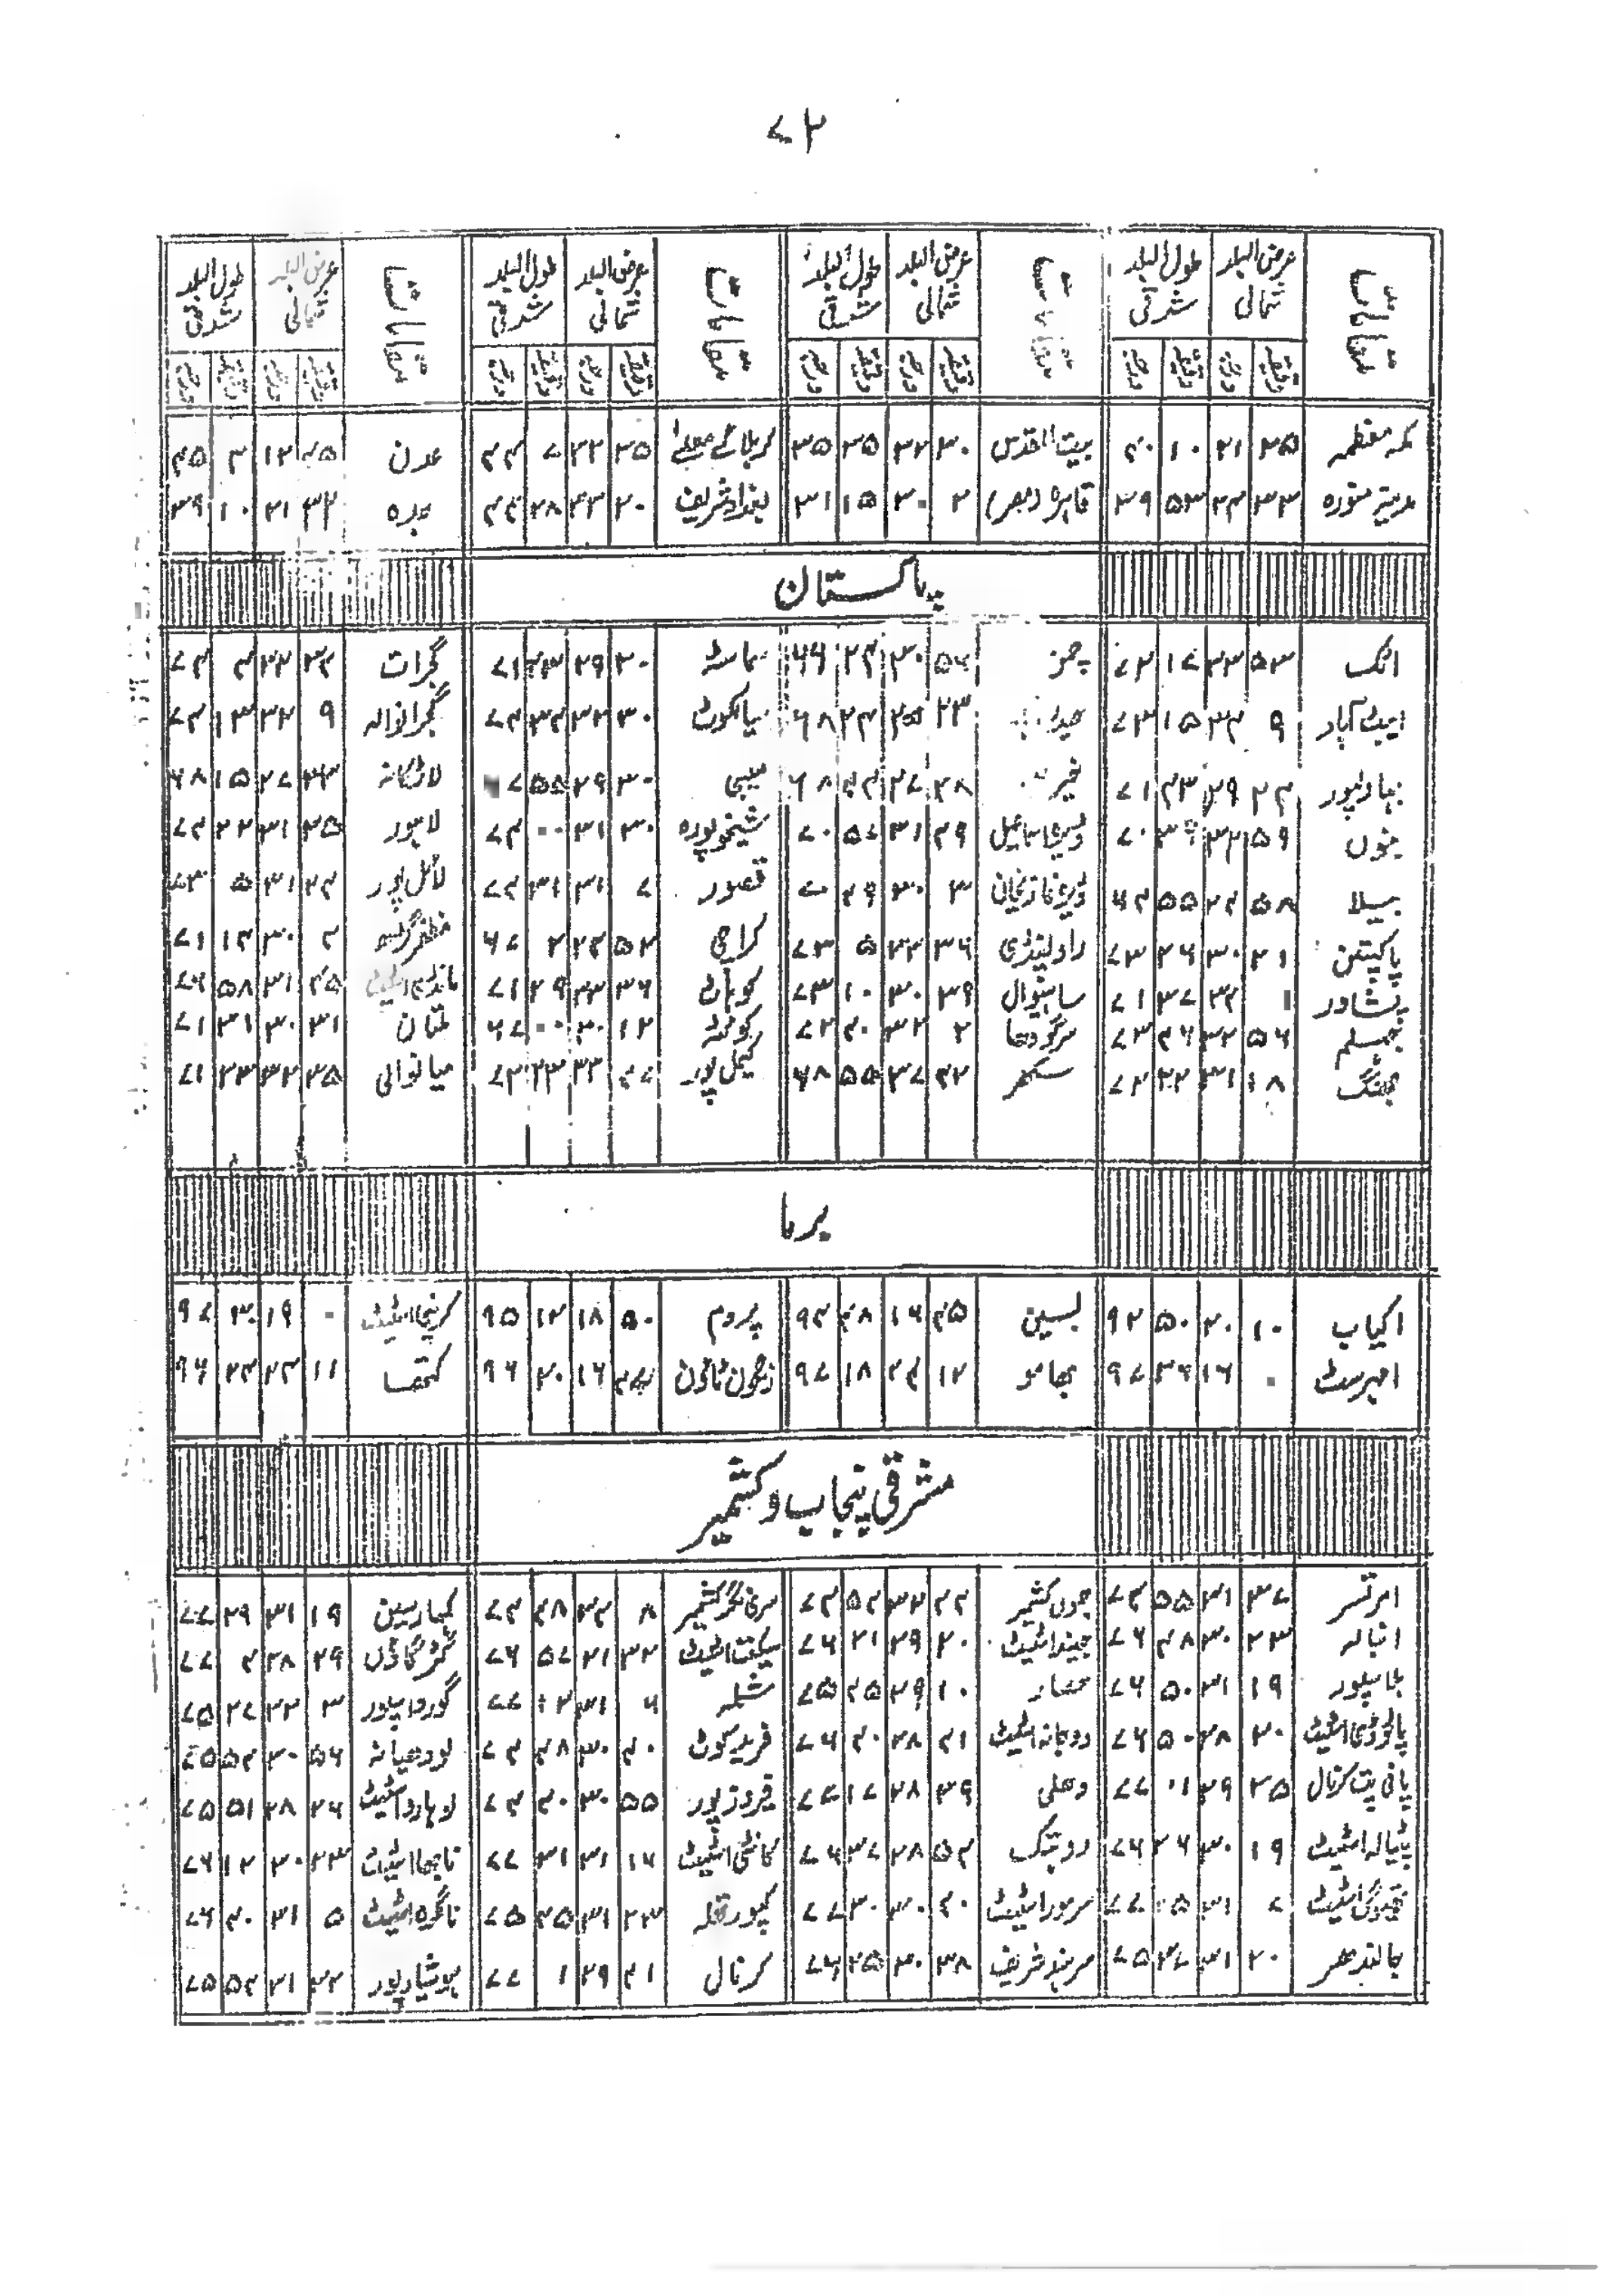 ۷۲
مقامات عرض البلد شمالی طول البلد شرقی مقامات عرض البلد شمالی طول البلد شرقی مقامات عرض البلد شمالی طول البلد شرقی مقامات عرض البلد شمالی طول البلد شرقی
دقیقہ درجہ دقیقہ درجہ دقیقہ درجہ دقیقہ درجہ دقیقہ درجہ دقیقہ درجہ دقیقہ درجہ دقیقہ درجہ
مکہ معظمہ ۲۵ ۲۱ ۱۰ ۴۰ بیت المقدس ۳۰ ۳۲ ۳۵ ۳۵ کربلائے معلےٰ ۳۵ ۳۲ ۷ ۴۴ عدن ۴۵ ۱۲ ۳ ۴۵
مدینہ منورہ ۳۳ ۲۴ ۵۳ ۳۹ قاہرہ (مصر) ۲ ۳۰ ۱۵ ۳۱ بغداد شریف ۲۰ ۳۳ ۲۸ ۴۴ جدہ ۳۲ ۲۱ ۱۰ ۳۹
پاکستان
اٹک ۵۳ ۳۳ ۱۷ ۷۲ چمن ۵۴ ۳۰ ۲۴ ۶۶ سماسٹہ ۳۰ ۲۹ ۳۳ ۷۱ گجرات ۳۴ ۳۲ ۴ ۷۴
ایبٹ آباد ۹ ۳۴ ۱۵ ۷۳ ۲۳ ۲۵ ۲۴ ۶۸ سیالکوٹ ۳۰ ۳۲ ۳۴ ۷۴ گجرانوالہ ۹ ۳۲ ۱۳ ۷۴
بہاولپور ۲۴ ۲۹ ۴۳ ۷۱ ۲۸ ۲۷ ۴۴ ۶۸ سیبی ۳۰ ۲۹ ۵۵ لاڑکانہ ۳۳ ۲۷ ۱۵ ۶۸
بنوں ۵۹ ۳۲ ۳۶ ۷۰ ڈیرہ اسماعیل ۴۹ ۳۱ ۵۷ ۷۰ شیخوپورہ ۳۰ ۳۱ ۰۰ ۷۴ لاہور ۳۵ ۳۱ ۲۲ ۷۴
بیلا ۵۸ ۲۴ ۵۵ ۶۴ ڈیرہ غازیخان ۳ ۳۰ ۴۹ قصور ۷ ۳۱ ۳۱ ۷۴ لائل پور ۲۴ ۳۱ ۵ ۷۳
پاکپتن ۲۱ ۳۰ ۲۶ ۷۳ راولپنڈی ۳۶ ۳۳ ۵ ۷۳ کراچی ۵۲ ۲۴ ۲ ۶۷ مظفر گڑھ ۴ ۳۰ ۱۴ ۷۱
پشاور ۱ ۳۴ ۳۷ ۷۱ ساہیوال ۳۹ ۳۰ ۱۰ ۷۳ کوہاٹ ۳۶ ۳۳ ۲۹ ۷۱ ۴۵ ۳۱ ۵۸ ۷۶
جہلم ۵۶ ۳۲ ۴۶ ۷۳ سرگودھا ۲ ۳۲ ۴۰ ۷۲ کوئٹہ ۱۲ ۳۰ ۰۰ ۶۷ ملتان ۳۱ ۳۰ ۳۱ ۷۱
جھنگ ۱۸ ۳۱ ۲۲ ۷۲ سکھر ۴۲ ۲۷ ۵۵ ۶۸ کیمل پور ۴۷ ۳۳ ۲۳ ۷۲ میانوالی ۳۵ ۳۲ ۳۳ ۷۱
برما
اکیاب ۱۰ ۲۰ ۵۰ ۹۲ بسین ۴۵ ۱۶ ۴۸ ۹۴ پروم ۵۰ ۱۸ ۱۲ ۹۵ کرینجی اسٹیٹ ۰ ۱۹ ۳۰ ۹۷
امہرسٹ ۰ ۱۶ ۳۶ ۹۷ بھامو ۱۲ ۲۴ ۱۸ ۹۷ رنجون ٹاؤن ۱۶ ۲۰ ۹۶ کتھا ۱۱ ۲۴ ۲۴ ۹۶
مشرقی پنجاب و کشمیر
امرتسر ۳۷ ۳۱ ۵۵ ۷۴ جموں کشمیر ۴۴ ۳۲ ۵۴ ۷۴ سری نگر کشمیر ۸ ۳۴ ۴۸ ۷۴ کمہارسین ۱۹ ۳۱ ۲۹ ۷۷
انبالہ ۲۳ ۳۰ ۴۸ ۷۶ جیند اسٹیٹ ۲۰ ۲۹ ۲۱ ۷۶ سکیت اسٹیٹ ۳۲ ۳۱ ۵۷ ۷۶ گڑگاؤں ۲۹ ۲۸ ۴ ۷۷
بلاسپور ۱۹ ۳۱ ۵۰ ۷۶ حصار ۱۰ ۲۹ ۴۵ ۷۵ شملہ ۶ ۳۱ ۱۲ ۷۷ گورداسپور ۳ ۳۲ ۲۷ ۷۵
پاٹوڈی اسٹیٹ ۲۰ ۲۸ ۵۰ ۷۶ دوجانہ اسٹیٹ ۴۱ ۲۸ ۴۰ ۷۶ فرید کوٹ ۴۰ ۳۰ ۴۸ ۷۴ لودھیانہ ۵۶ ۳۰ ۵۴ ۷۵
پانی پت کرنال ۲۵ ۲۹ ۰۱ ۷۷ دھلی ۳۹ ۲۸ ۱۷ ۷۷ فیروز پور ۵۵ ۳۰ ۴۰ ۷۴ لوہارو اسٹیٹ ۲۶ ۲۸ ۵۱ ۷۵
پٹیالہ اسٹیٹ ۱۹ ۳۰ ۲۶ ۷۶ روہتک ۵۴ ۲۸ ۳۷ ۷۶ کانٹی اسٹیٹ ۱۶ ۳۱ ۳۱ ۷۷ نابھا اسٹیٹ ۲۳ ۳۰ ۱۲ ۷۶
۷ ۳۱ ۱۵ ۷۷ سرمور اسٹیٹ ۴۰ ۳۰ ۳۰ ۷۷ کپورتھلہ ۲۳ ۳۱ ۲۵ ۷۵ نانگرہ اسٹیٹ ۵ ۳۱ ۴۰ ۷۶
جالندھر ۲۰ ۳۱ ۳۷ ۷۵ سرہند شریف ۳۸ ۳۰ ۲۵ ۷۶ کرنال ۴۱ ۲۹ ۱ ۷۷ ہوشیارپور ۳۲ ۳۱ ۵۴ ۷۵